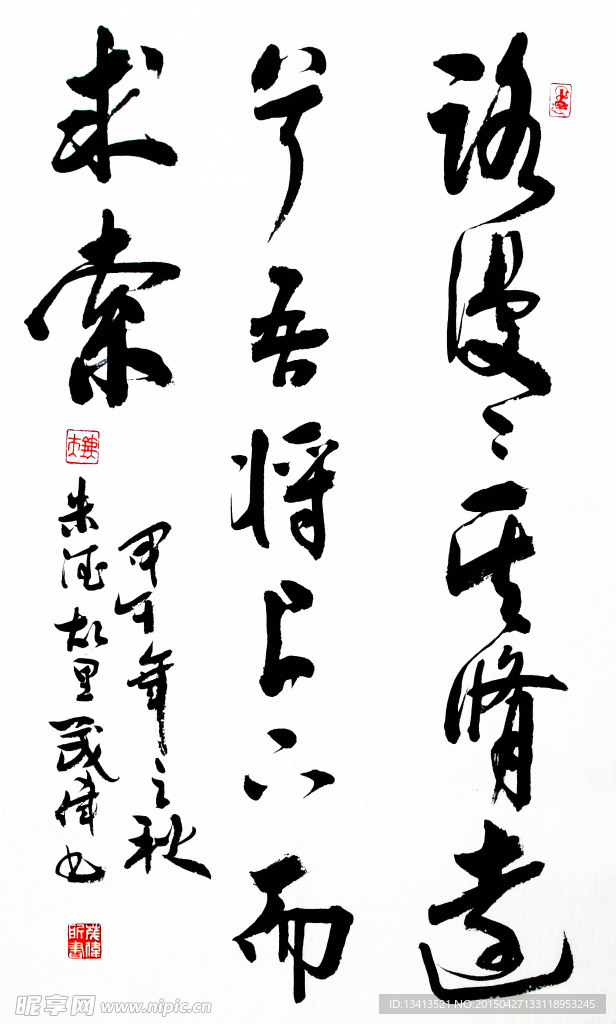 路漫々其脩遠
兮吾将上下而
求索
甲午年之秋
朱德故里茂偉书
昵享网 www.nipic.cn
ID:13413521 NO:20150427133118953245